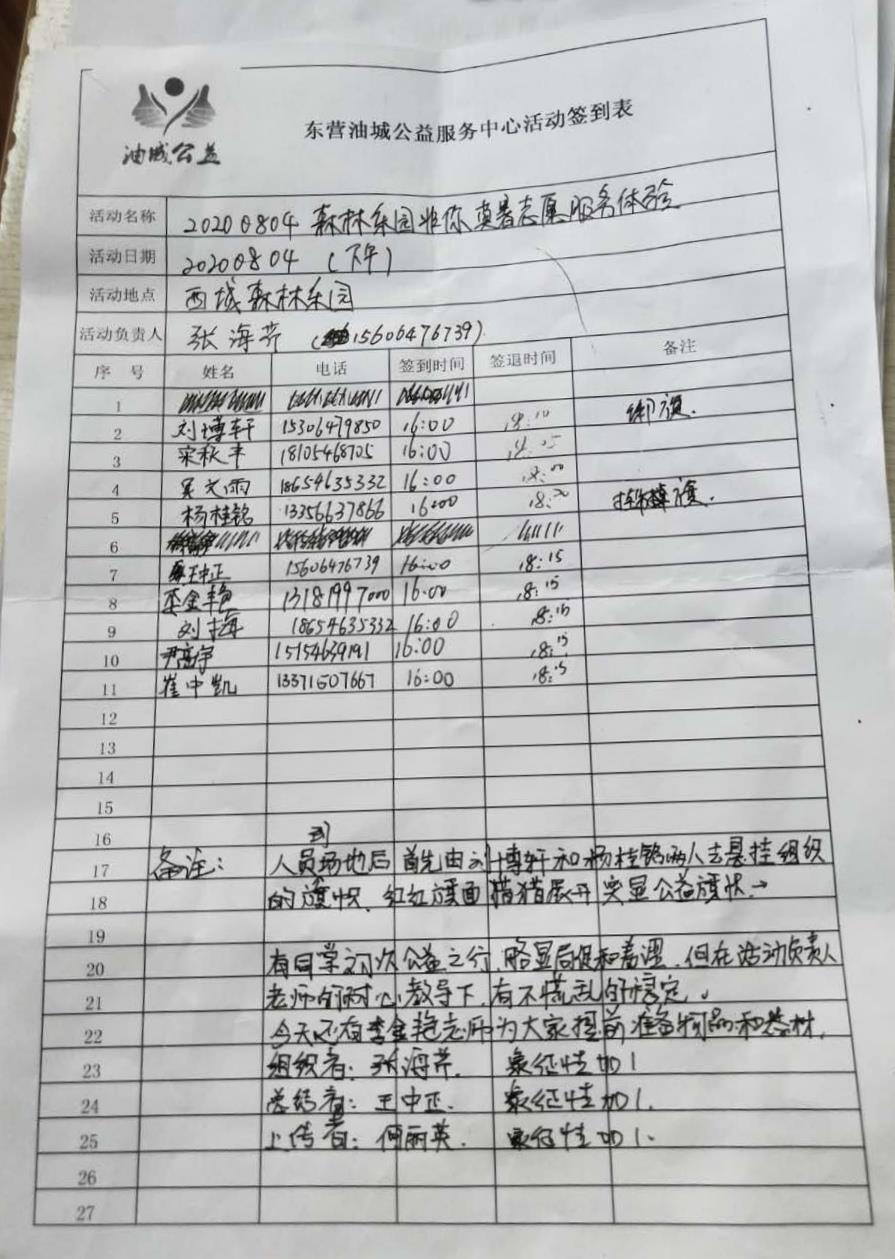 油城公益
东营油城公益服务中心活动签到表
活动名称 20200804 森林乐园非你莫暑志愿服务体验
活动日期 20200804 (下午)
活动地点 西城森林乐园
活动负责人 张海芹 (15606476739)
序号 姓名 电话 签到时间 签退时间 备注
1
2 刘博轩 15306479850 16:00 18:10 绑旗.
3 宋秋丰 18105468705 16:00 18:05
4 吴文雨 18654635332 16:00 18:00
5 杨桂铭 13356637866 16:00 18:20 旗.
6
7 王中正 15606476739 16:00 18:15
8 李金艳 13181997000 16:00 18:15
9 刘梅 18654635332 16:00 18:15
10 尹高宇 15154639191 16:00 18:15
11 崔中凯 13371507667 16:00 18:15
12
13
14
15
16 到
17 备注: 人员场地后 首先由刘博轩和杨桂铭两人去悬挂组织
18 的旗帜、红红旗面猎猎展开 突显公益旗帜.
19
20 有同学初次公益之行,略显局促和羞涩,但在活动负责人
21 老师的耐心教导下,有不慌乱的稳定。
22 今天还有李金艳老师为大家提前准备物品和器材.
23 组织者: 张海芹. 象征性加1
24 总结者: 王中正. 象征性加1.
25 上传者: 何丽英. 象征性加1.
26
27